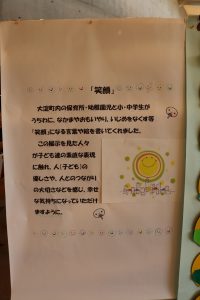 「笑顔」
大淀町内の保育所・幼稚園児と小・中学生が
うちわに、なかまやおもいやり、いじめをなくす等
「笑顔」になる言葉や絵を書いてくれました。
この展示を見た人々
が子ども達の素直な表現
に触れ、人(子ども)の
優しさや、人とのつながり
の大切さなどを感じ、幸せ
な気持ちになっていただけ
ますように。